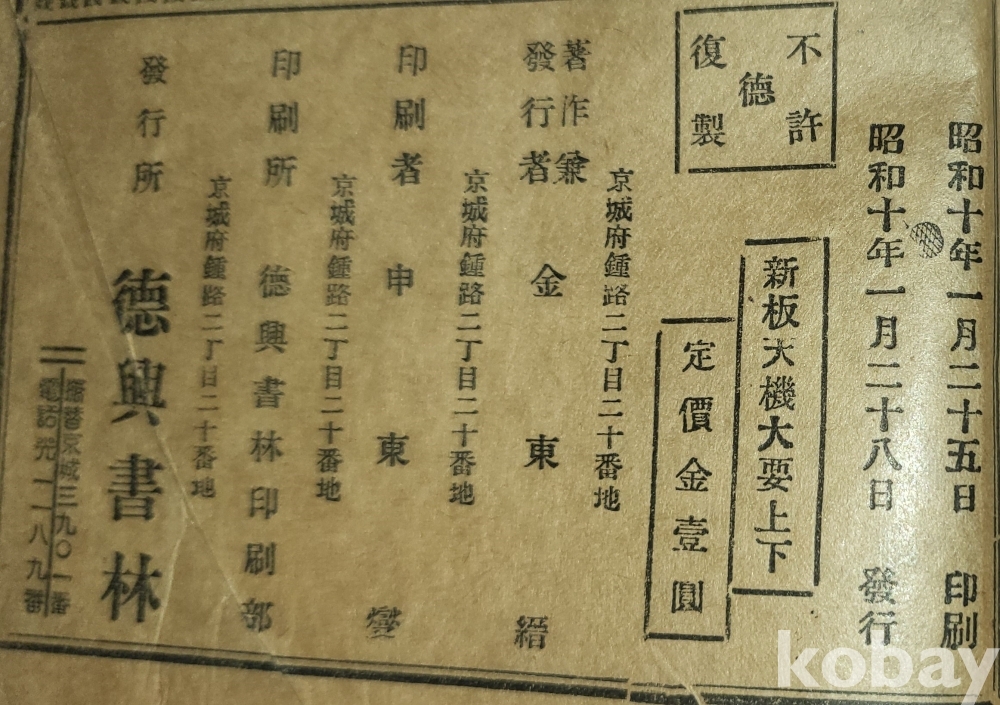 昭和十年一月二十五日 印刷
昭和十年一月二十八日 發行
不許
德
復製
新板天機大要上下
定價金壹圓
京城府鍾路二丁目二十番地
著作兼
發行者 金東縉
京城府鍾路二丁目二十番地
印刷者 申東燮
京城府鍾路二丁目二十番地
印刷所 德興書林印刷部
發行所 德興書林
振替京城三九〇一番
電話光一二八九番
kobay